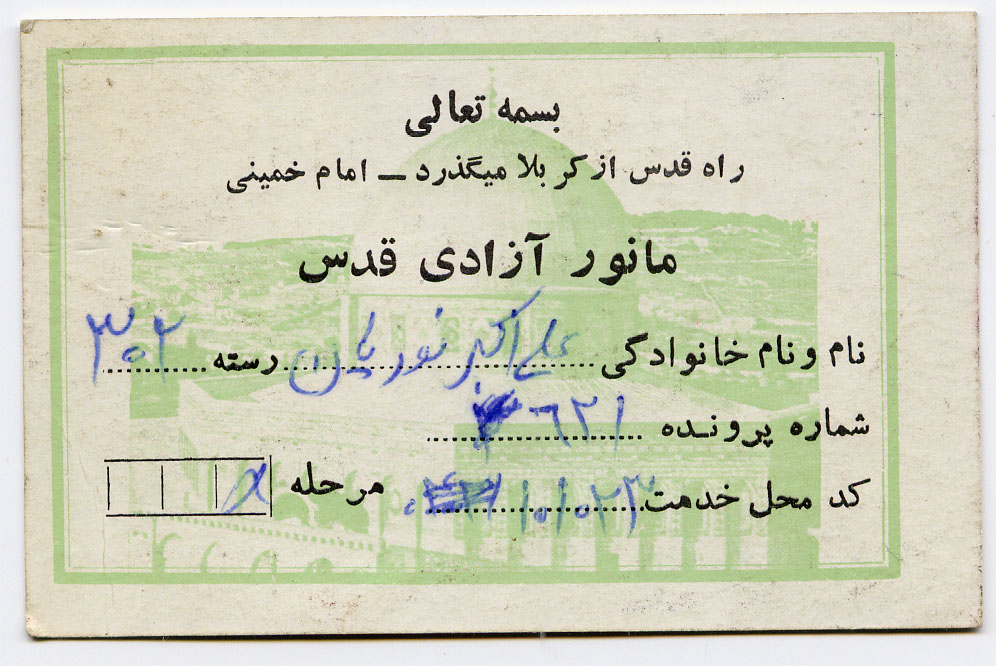 بسمه تعالی
راه قدس از کربلا میگذرد ــ امام خمینی
مانور آزادی قدس
نام و نام خانوادگی علی اکبر نوریان رسته ۳۰۲
شماره پرونده ۶۲۱
کد محل خدمت مرحله